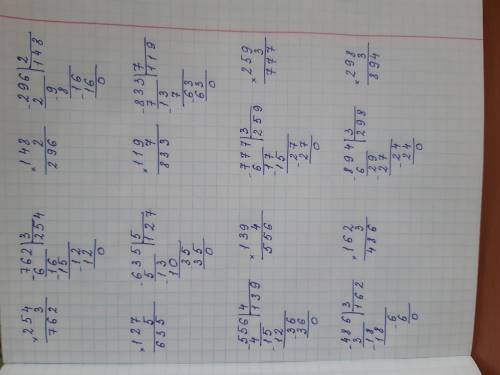 ×254
3
762
-762|3
6 |254
-16
15
-12
12
0
×148
2
296
-296|2
2 |148
-9
8
-16
16
0
×127
5
635
-635|5
5 |127
-13
10
-35
35
0
×119
7
833
-833|7
7 |119
-13
7
-63
63
0
-556|4
4 |139
-15
12
-36
36
0
×139
4
556
-777|3
6 |259
-17
15
-27
27
0
×259
3
777
-486|3
3 |162
-18
18
-6
6
0
×162
3
486
-894|3
6 |298
-29
27
-24
24
0
×298
3
894